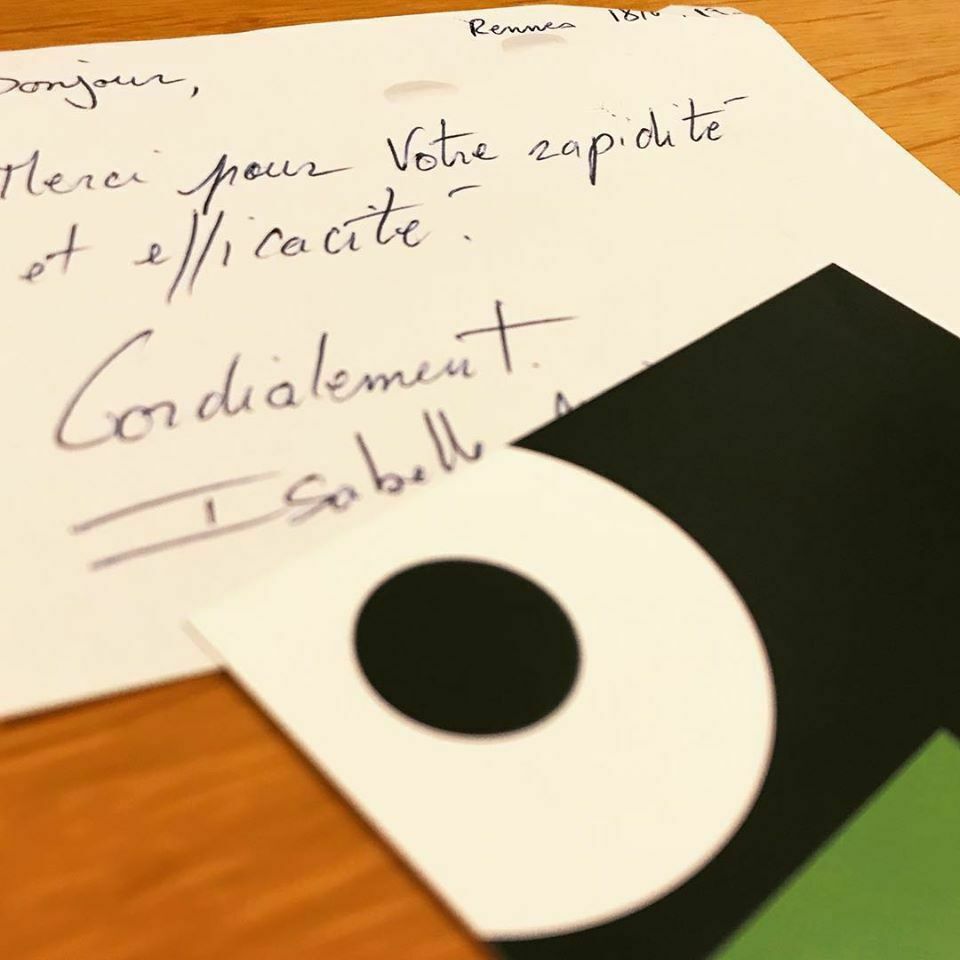 Rennes
Bonjour,
Merci pour Votre rapidité
et efficacité.
Cordialement.
Isabelle